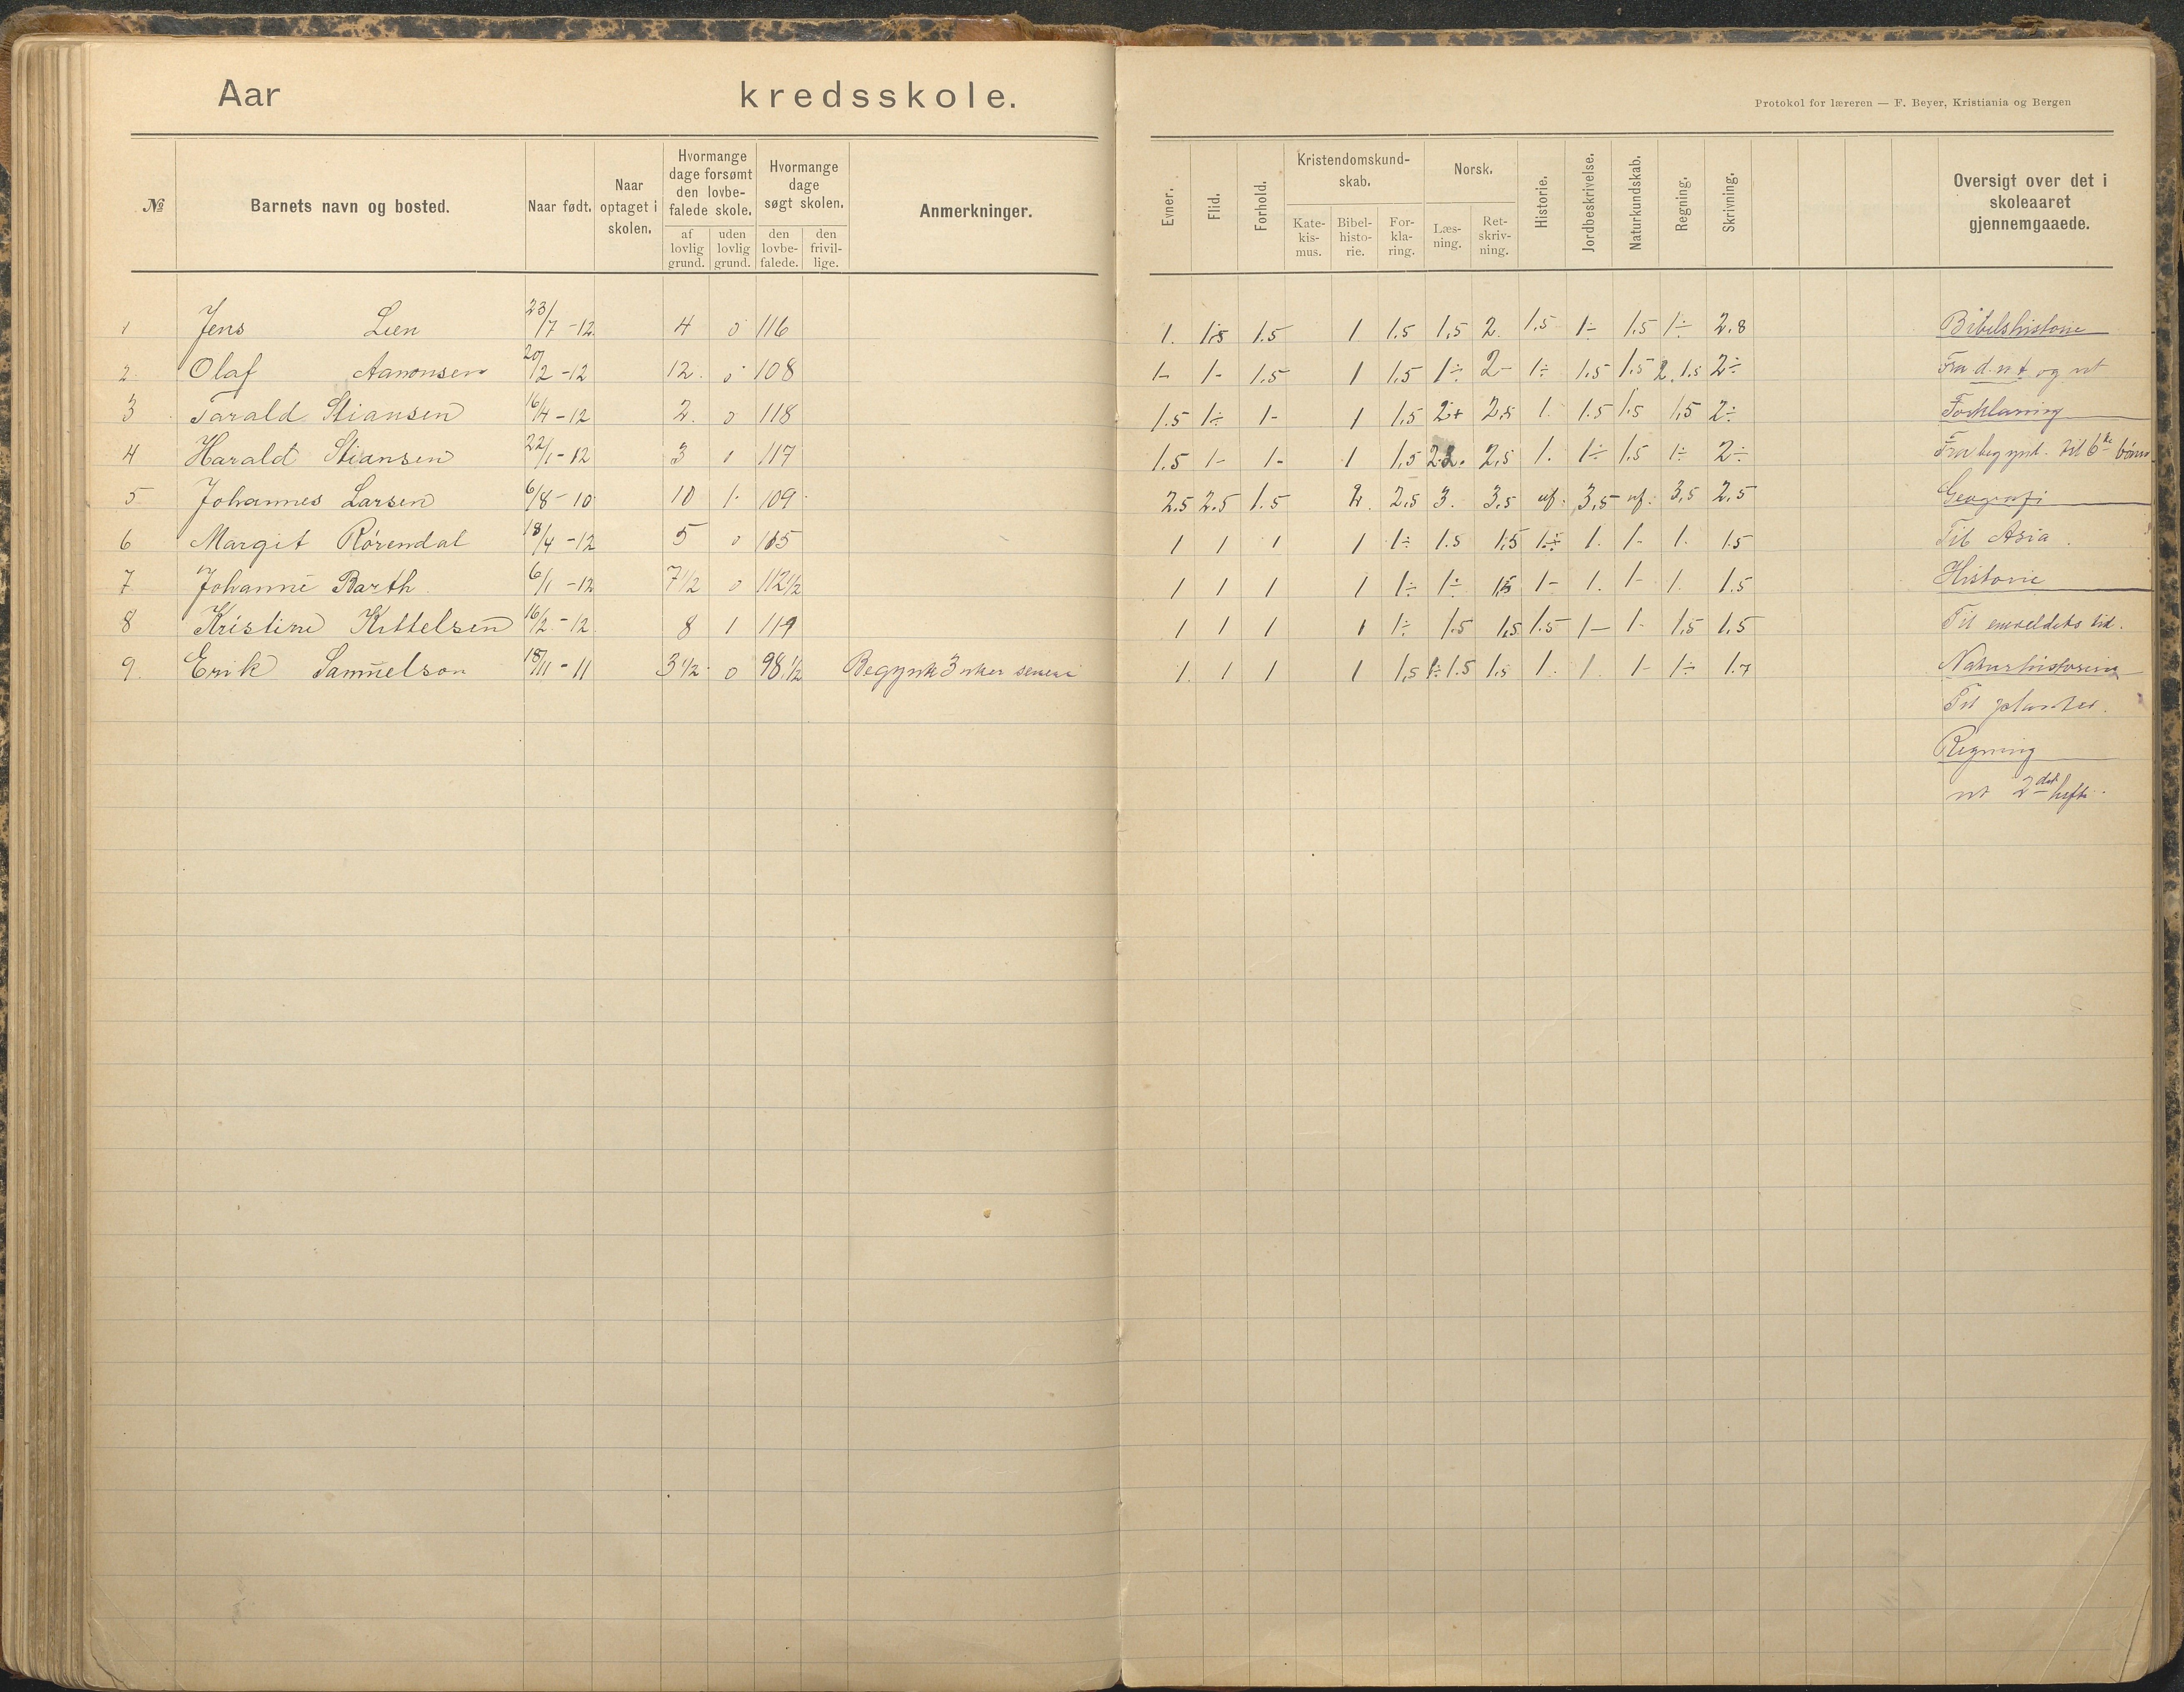 Aar kredsskole.
Protokol for læreren — F. Beyer, Kristiania og Bergen
№ Barnets navn og bosted. Naar født. Naar optaget i skolen. Hvormange dage forsømt den lovbefalede skole. af lovlig grund. uden lovlig grund. Hvormange dage søgt skolen. den lovbefalede. den frivillige. Anmerkninger. Evner. Flid. Forhold. Kristendomskundskab. Katekismus. Bibelhistorie. Forklaring. Norsk. Læsning. Retskrivning. Historie. Jordbeskrivelse. Naturkundskab. Regning. Skrivning. Oversigt over det i skoleaaret gjennemgaaede.
1 Jens Lien 23/7 -12 4 0 116 1. 1.5 1.5 1 1.5 1,5 2. 1.5 1÷ 1.5 1÷ 2.8 Bibelshistorie
2. Olaf Aanonsen 20/2 -12 12. 0 108 1- 1- 1.5 1 1.5 1÷ 2- 1÷ 1.5 1.5 2. 1.5 2÷ Fra d.n.t og ut
3 Tarald Stiansen 16/4 -12 2. 0 118 1.5 1÷ 1- 1 1,5 2+ 2,5 1. 1.5 1.5 1,5 2÷ Forklaring
4 Harald Stiansen 22/1 - 12 3 1 117 1.5 1- 1- 1 1,5 2. 2,5 1. 1÷ 1.5 1÷ 2÷ Fra begynd. til 6te bøn
5 Johannes Larsen 6/8 - 10 10 1. 109 2.5 2.5 1.5 2. 2,5 3. 3,5 uf. 3,5 uf. 3,5 2.5 Geografi
6 Margit Rørendal 18/4 -12 5 0 115 1 1 1 1 1÷ 1.5 1,5 1÷ 1. 1- 1. 1.5 Til Asia.
7 Johanne Barth 6/1 -12 7 1/2 0 112 1/2 1 1 1 1 1÷ 1÷ 1,5 1- 1. 1- 1. 1.5 Historie
8 Kristine Kittelsen 16/2 -12. 8 1 119 1 1 1 1 1÷ 1.5 1,5 1.5 1- 1- 1,5 1,5 Til enveldets tid.
9. Erik Samuelson 18/11 - 11 3 1/2 0 98 1/2 Begynte 3 uker senere 1. 1 1 1 1,5 1.5 1.5 1. 1. 1- 1÷ 1.7 Naturhistorie
Til planter.
Regning
ut 2det hefte.